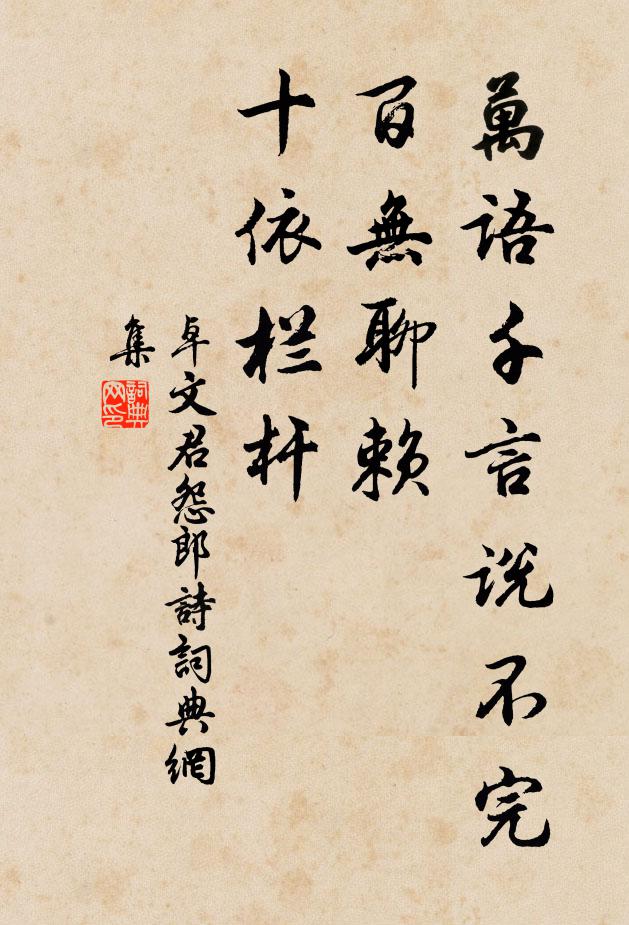 萬語千言説不完
百無聊賴
十依栏杆
卓文君怨郎詩詞典網
集
詞典
网印